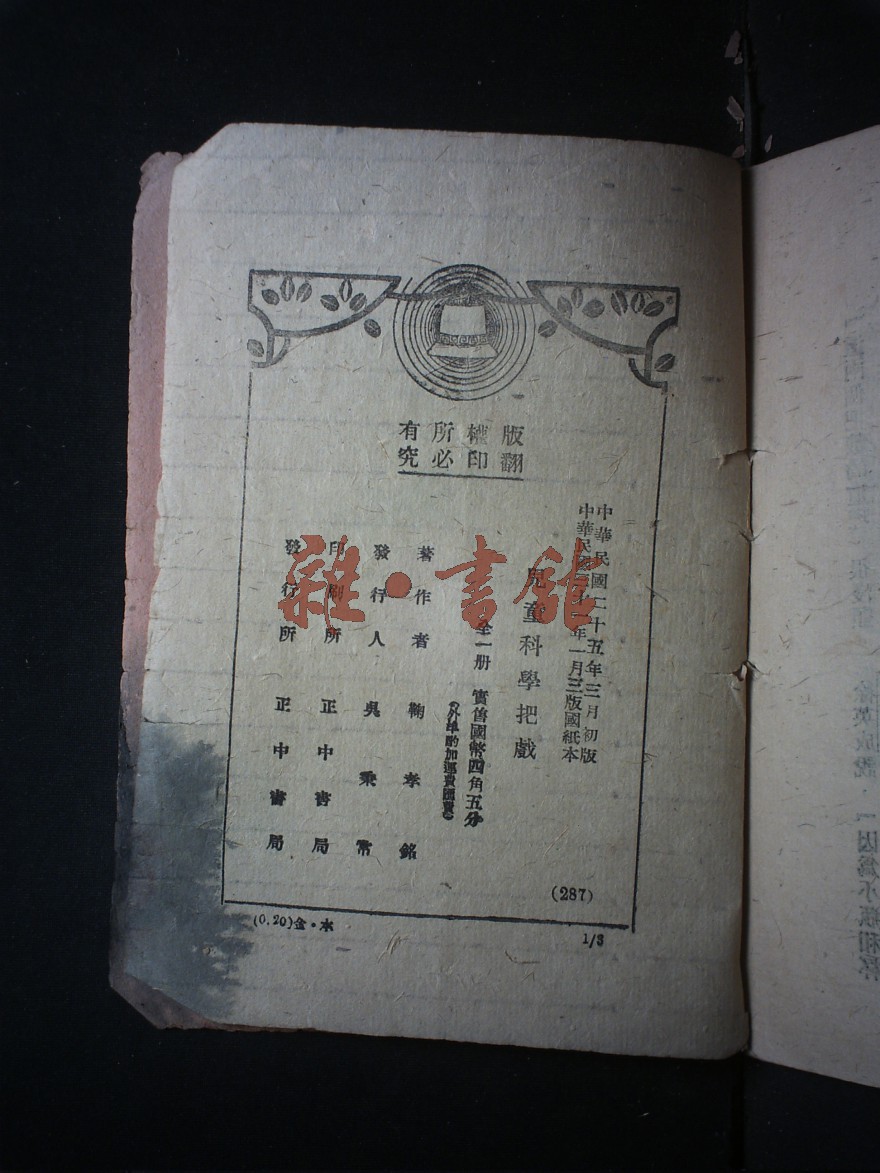 版權所有
翻印必究
中華民國二十五年三月初版
中華民國三十一年一月三版國紙本
兒童科學把戲
全一册 實售國幣四角五分
(外埠酌加運費匯費)
著作者 鞠孝銘
發行人 吳秉常
印刷所 正中書局
發行所 正中書局
(287)
(0.20)金·本
1/3
雜·書館